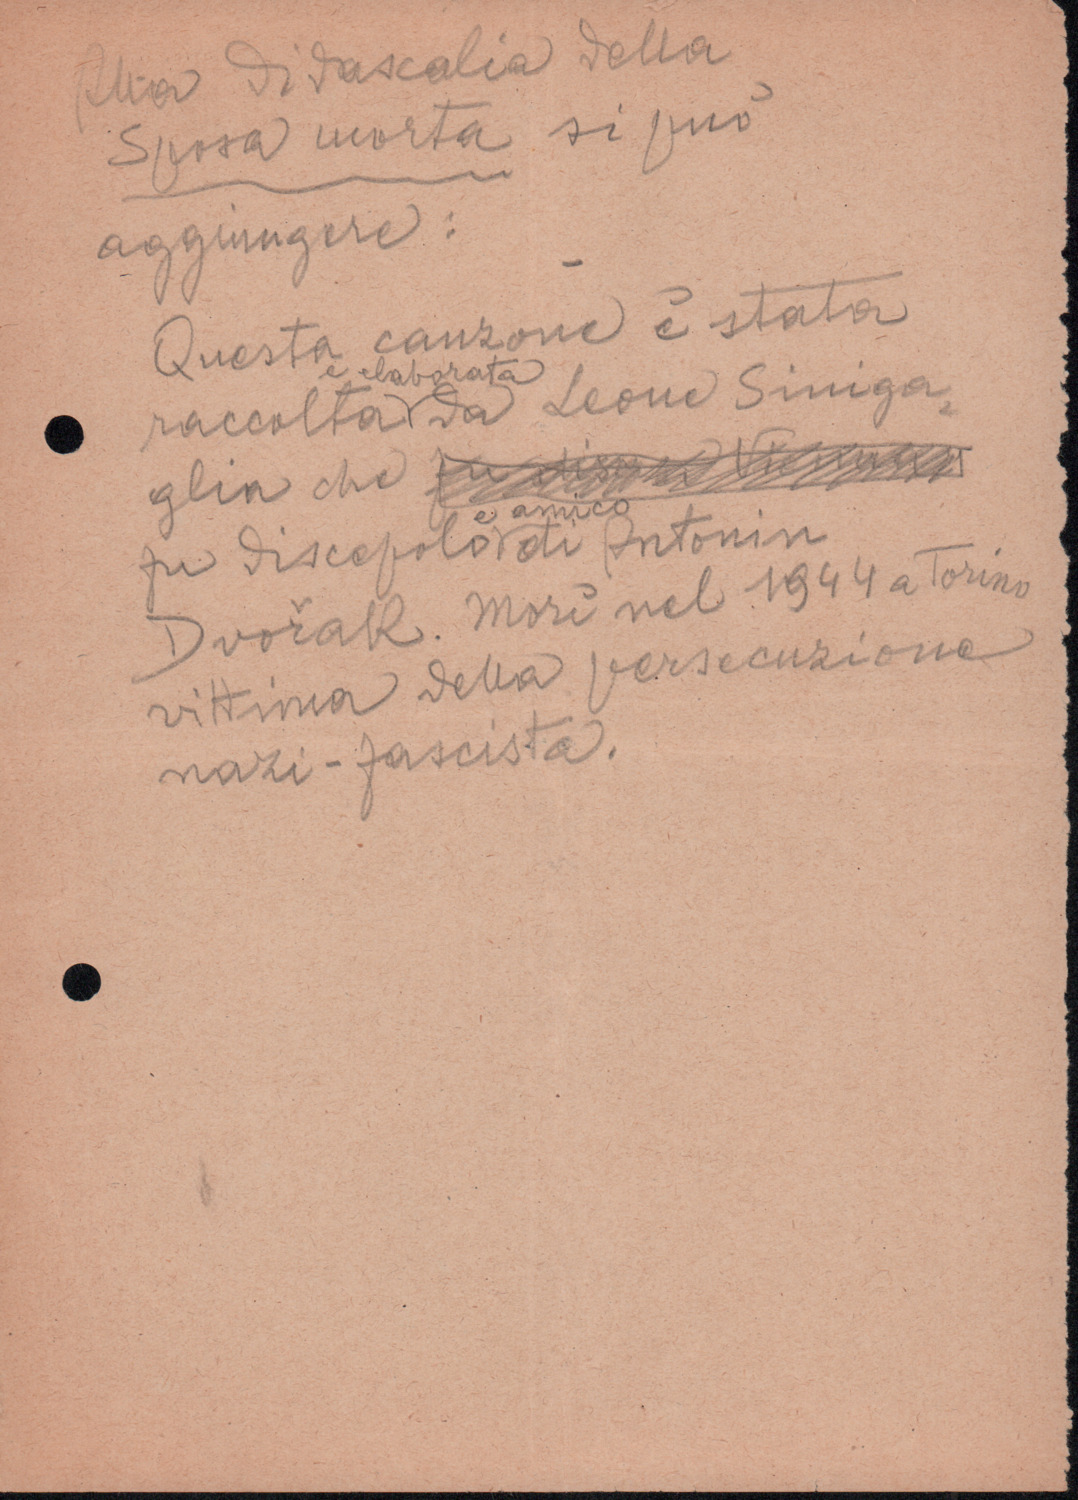 Alla Didascalia della
Sposa morta si può
aggiungere:
Questa canzone è stata
e elaborata
raccolta da Leone Siniga=
glia che
e amico
fu discepolo di Antonin
Dvořak. Morì nel 1944 a Torino
vittima della persecuzione
nazi-fascista.